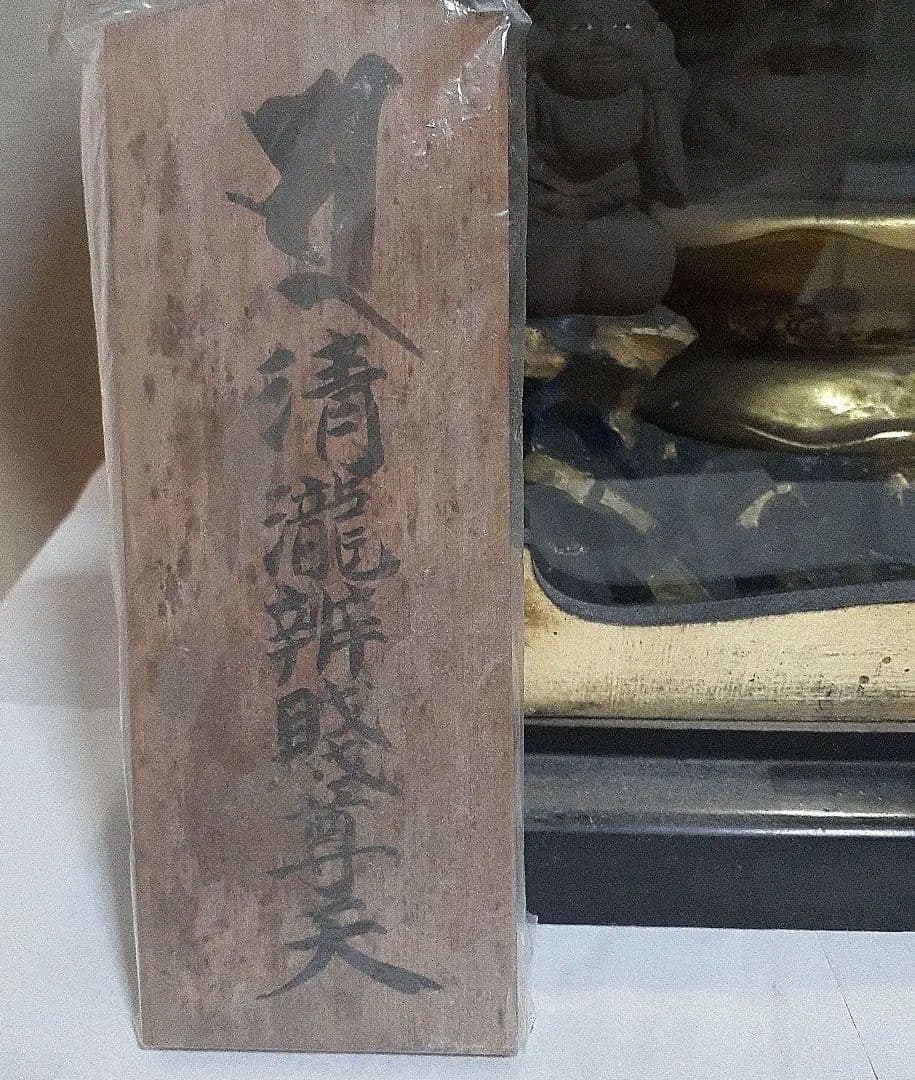 清瀧辨賤尊天